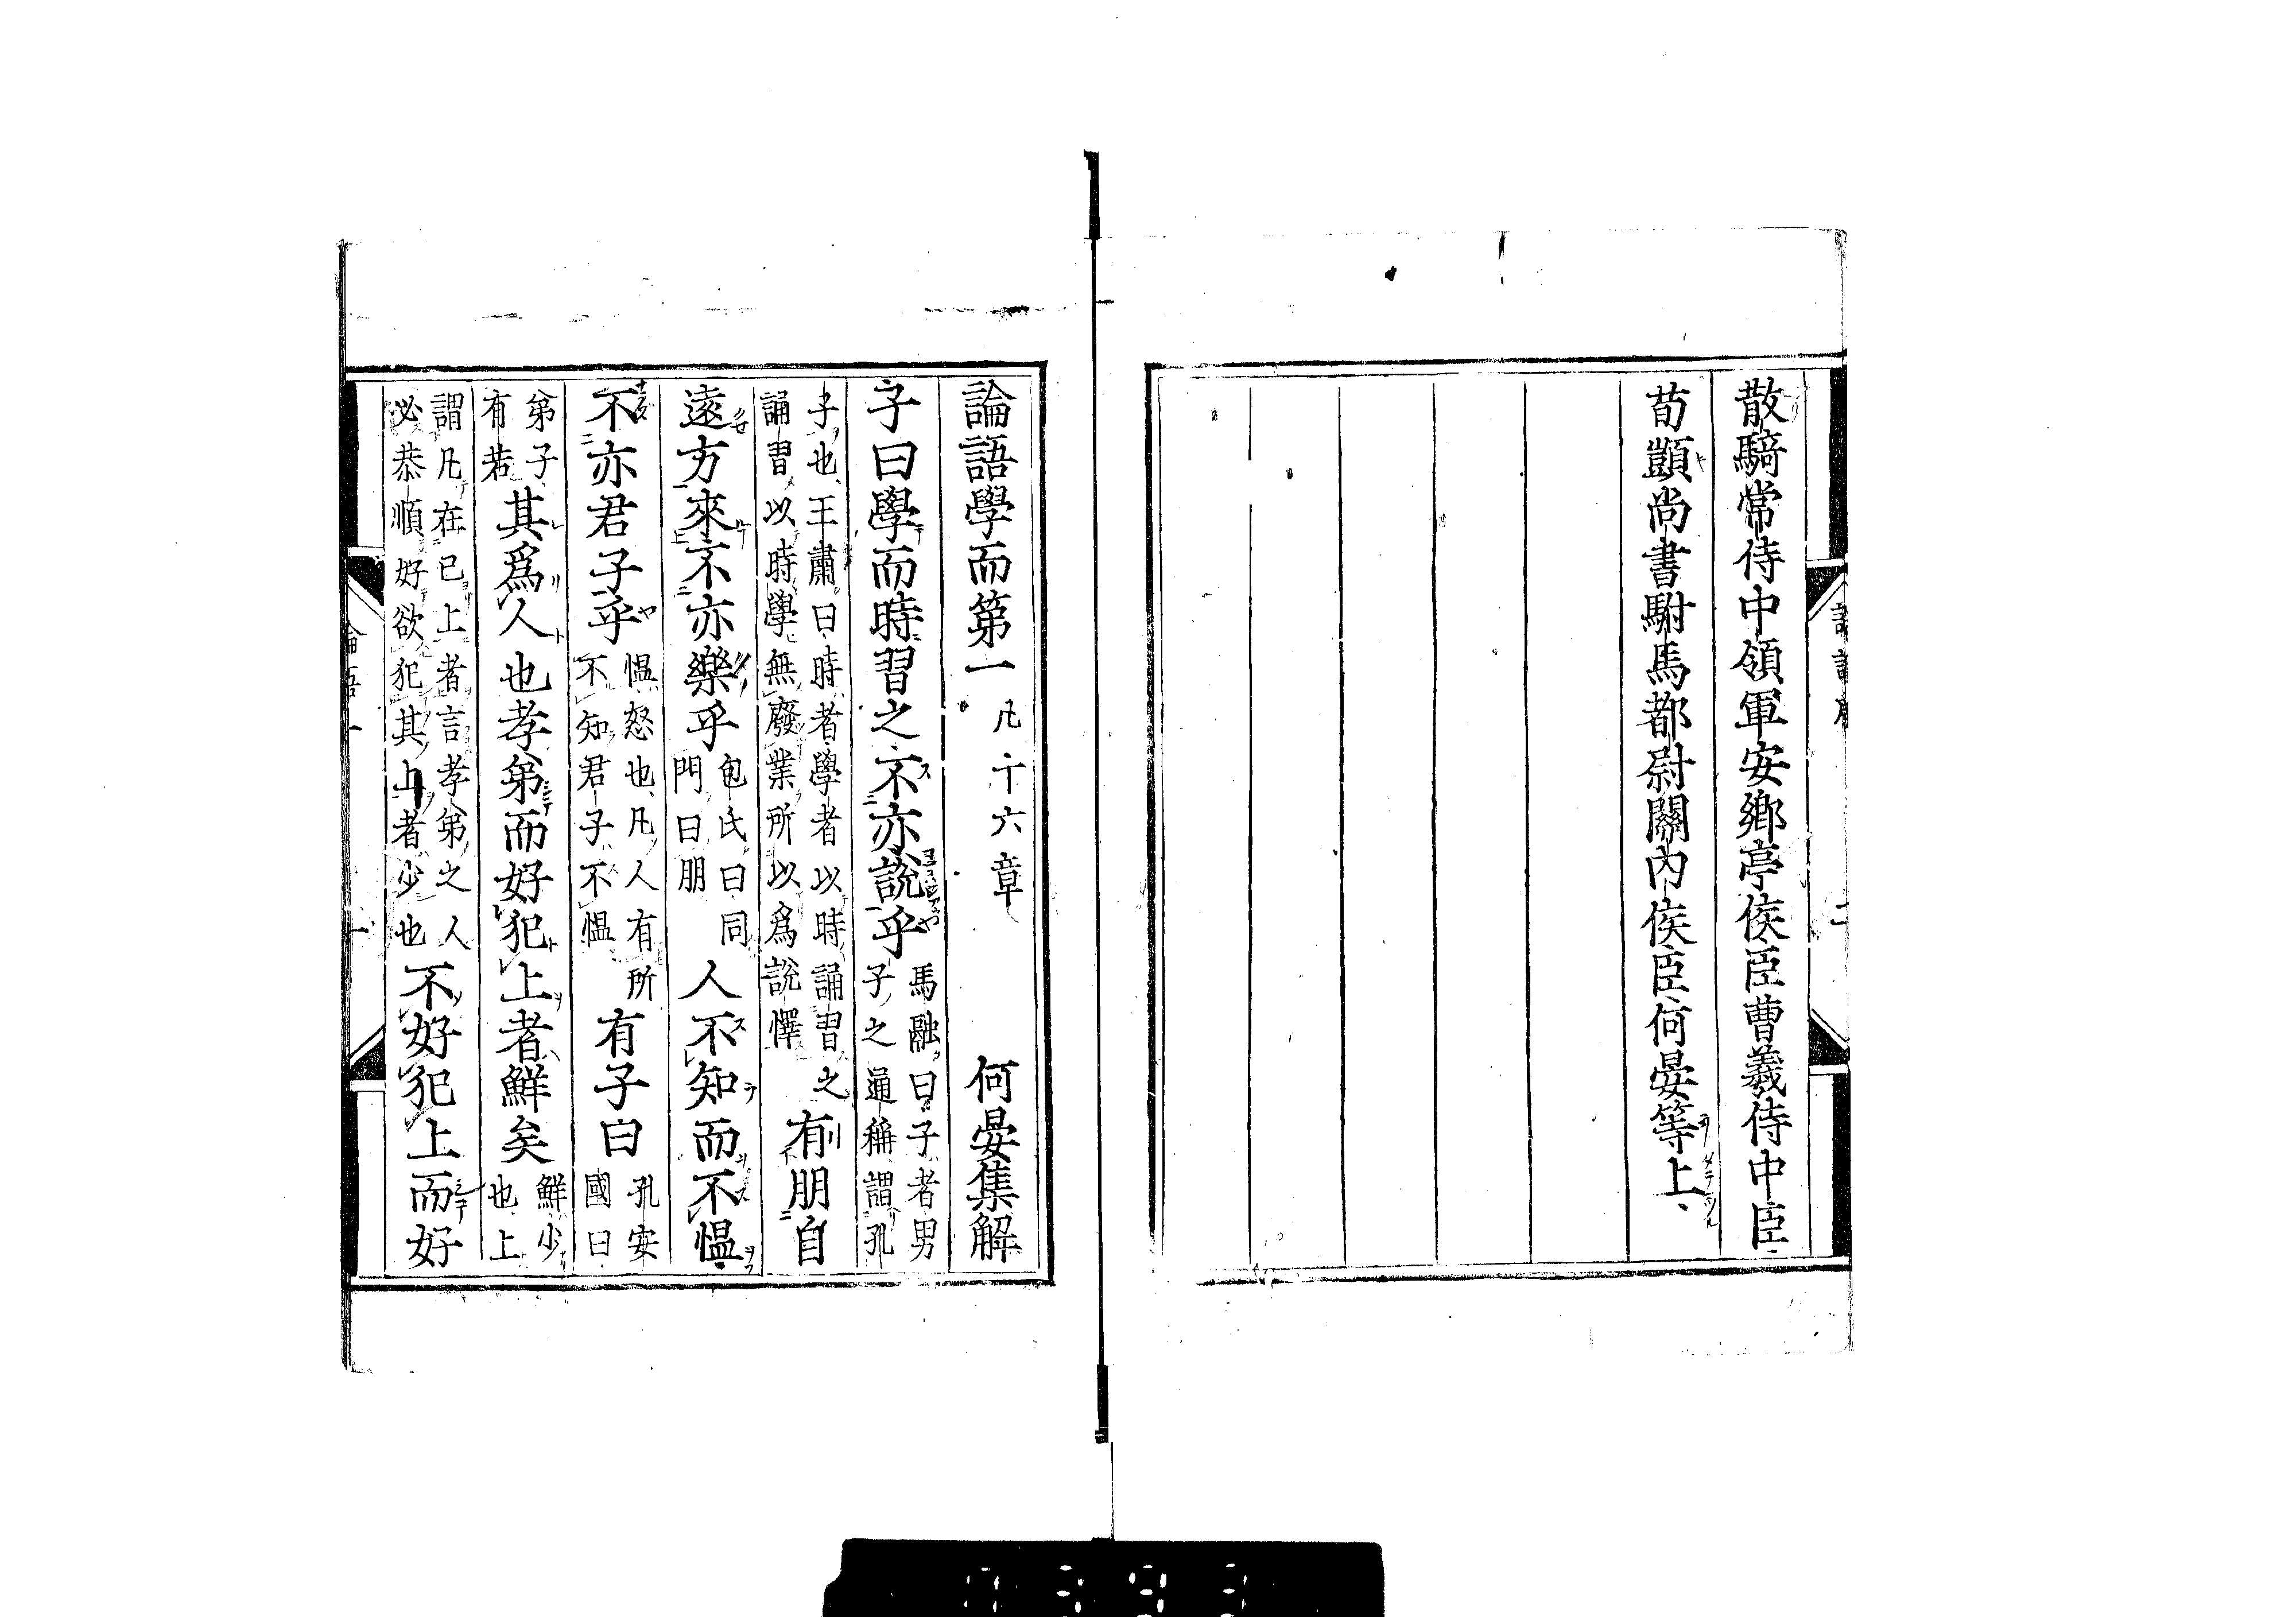 散騎常侍中領軍安鄉亭侯臣曹羲侍中臣
荀顗尚書駙馬都尉關內侯臣何晏等上
論語學而第一 凡十六章 何晏集解
子曰學而時習之不亦說乎 馬融曰子者男
子之通稱謂孔
子也王肅曰時者學者以時誦習之
誦習以時學無廢業所以爲說懌
有朋自
遠方來不亦樂乎 包氏曰同
門曰朋
人不知而不慍
不亦君子乎 慍怒也凡人有所
不知君子不慍
有子曰 孔安
國曰
弟子
有若
其爲人也孝弟而好犯上者鮮矣 鮮少
也上
謂凡在己上者言孝弟之人
必恭順好欲犯其上者少也
不好犯上而好